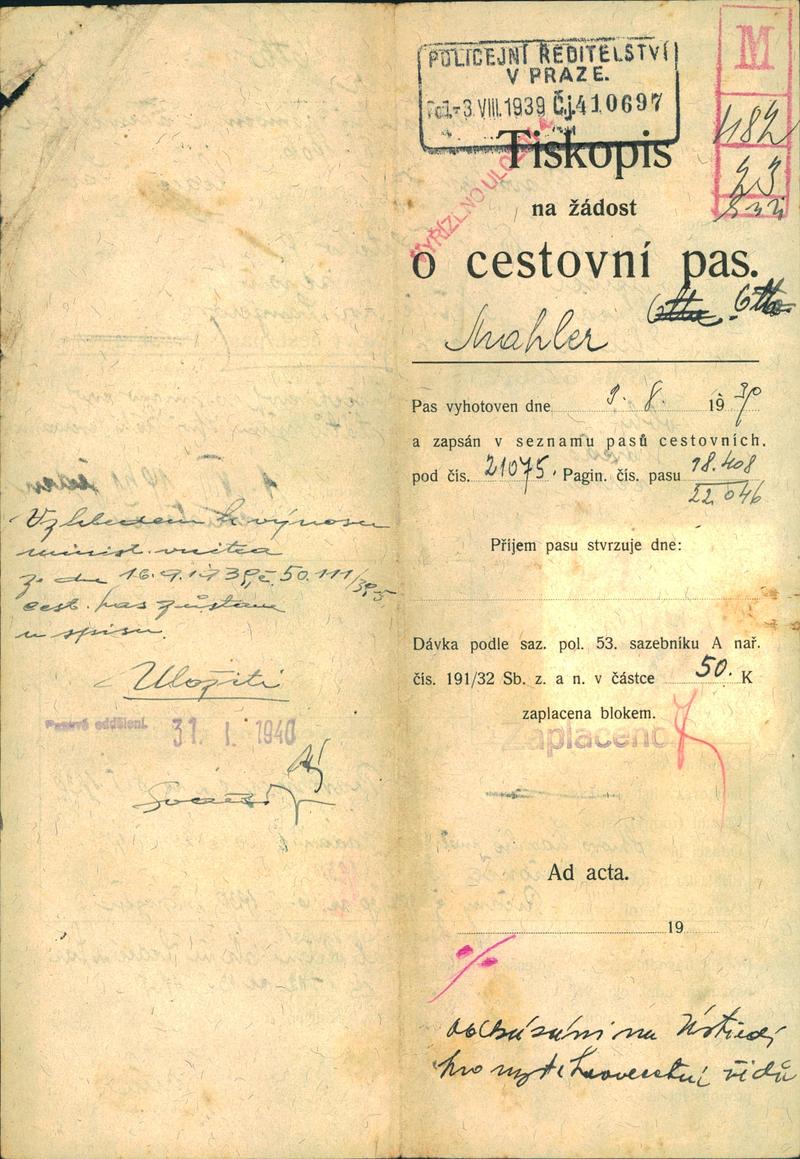 POLICEJNÍ ŘEDITELSTVÍ
V PRAZE.
-3. VIII. 1939 Čj. 410697
M
482
23
VYŘÍZENO ULOŽENO
Tiskopis
na žádost
o cestovní pas.
Mahler Otto
Pas vyhotoven dne 9. 8. 1939
a zapsán v seznamu pasů cestovních.
pod čís. 21075. Pagin. čís. pasu 18.408
22.046
Příjem pasu stvrzuje dne:
Dávka podle saz. pol. 53. sazebníku A nař.
čís. 191/32 Sb. z. a n. v částce 50. K
zaplacena blokem.
Zaplaceno
Ad acta.
19
Vzhledem k výnosu
minist. vnitra
ze dne 16.9.1939 č. 50.111/39-5
cest. pas zůstane
u spisu.
Uložiti
Pasové oddělení. 31. I. 1940
na Ústředí
pro vystěhovalectví židů